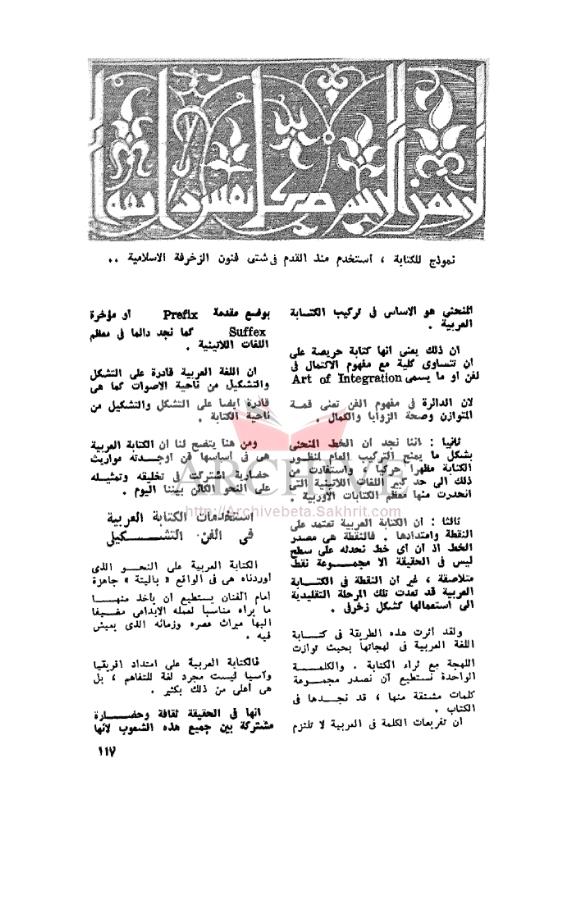 نموذج للكتابة ، استخدم منذ القدم في شتى فنون الزخرفة الاسلامية ..
المنحني هو الاساس في تركيب الكتابة
العربية .
ان ذلك يعنى انها كتابة حريصة على
ان تتساوى كلية مع مفهوم الاكتمال في
لفن او ما يسمى Art of Integration
لان الدائرة في مفهوم الفن تعنى قمة
التوازن وصحة الزوايا والكمال .
ثانيا : اننا نجد ان الخط المنحنى
بشكل ما يمنح التركيب العام لمنظور
الكتابة مظهرا حركيا ، واستفادت من
ذلك الى حد كبير اللغات اللاتينية التى
انحدرت منها معظم الكتابات الاوربية .
ثالثا : ان الكتابة العربية تعتمد على
النقطة وامتدادها . فالنقطة هى مصدر
الخط اذ ان أى خط نحدثه على سطح
ليس في الحقيقة الا مجموعة نقط
متلاصقة ، غير ان النقطة في الكتابة
العربية قد تعدت تلك المرحلة التقليدية
الى استعمالها كشكل زخرفى .
ولقد أثرت هذه الطريقة في كتابة
اللغة العربية في لهجاتها بحيث توازت
اللهجة مع ثراء الكتابة . والكلمة
الواحدة نستطيع أن نصدر مجموعة
كلمات مشتقة منها ، قد نجدها في
الكتاب .
ان تفريعات الكلمة في العربية لا تلتزم
بوضع مقدمة Prefix او مؤخرة
Suffex كما نجد دائما في معظم
اللغات اللاتينية .
ان اللغة العربية قادرة على التشكل
والتشكيل من ناحية الاصوات كما هى
قادرة ايضا على التشكل والتشكيل من
ناحية الكتابة .
ومن هنا يتضح لنا ان الكتابة العربية
هى في أساسها فن اوجدته مواريث
حضارية اشتركت في تخليقه وتمثيله
على النحو الكائن بيننا اليوم .
استخدامات الكتابة العربية
في الفن التشكيل
الكتابة العربية على النحو الذى
اوردناه هى في الواقع « باليتة » جاهزة
أمام الفنان يستطيع ان يأخذ منها
ما يراه مناسبا لعمله الابداعى مضيفا
اليها ميراث عصره وزمانه الذى يعيش
فيه .
فالكتابة العربية على امتداد افريقيا
وآسيا ليست مجرد لغة للتفاهم ، بل
هى أعلى من ذلك بكثير .
انها في الحقيقة ثقافة وحضارة
مشتركة بين جميع هذه الشعوب لانها
١١٧
ARCHIVE
http://Archivebeta.Sakhrit.com